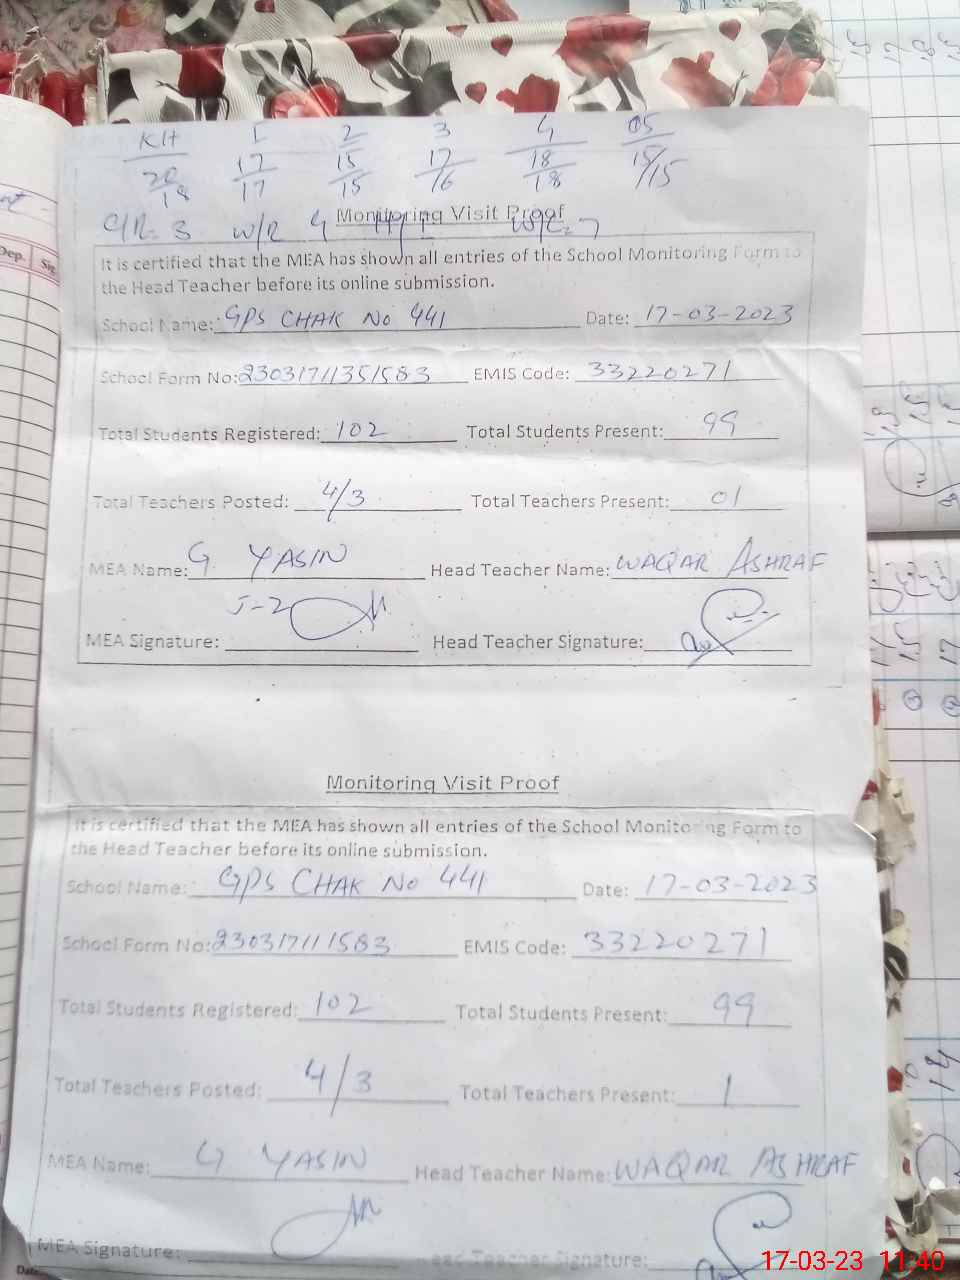 KH 1 2 3 4 05
20/18 17/17 15/15 17/16 18/18 15/15
C/R= 3 W/R 4 W/C= 7
Monitoring Visit Proof
It is certified that the MEA has shown all entries of the School Monitoring Form to
the Head Teacher before its online submission.
School Name: GPS CHAK No 441 Date: 17-03-2023
School Form No: 23031711351583 EMIS Code: 33220271
Total Students Registered: 102 Total Students Present: 99
Total Teachers Posted: 4/3 Total Teachers Present: 01
MEA Name: G. YASIN Head Teacher Name: WAQAR ASHRAF
J-2
MEA Signature: Head Teacher Signature:
Monitoring Visit Proof
It is certified that the MEA has shown all entries of the School Monitoring Form to
the Head Teacher before its online submission.
School Name: GPS CHAK No 441 Date: 17-03-2023
School Form No: 230317111583 EMIS Code: 33220271
Total Students Registered: 102 Total Students Present: 99
Total Teachers Posted: 4/3 Total Teachers Present: 1
MEA Name: G YASIN Head Teacher Name: WAQAR ASHRAF
MEA Signature: Head Teacher Signature:
Dep. Sig.
Date
17-03-23 11:40